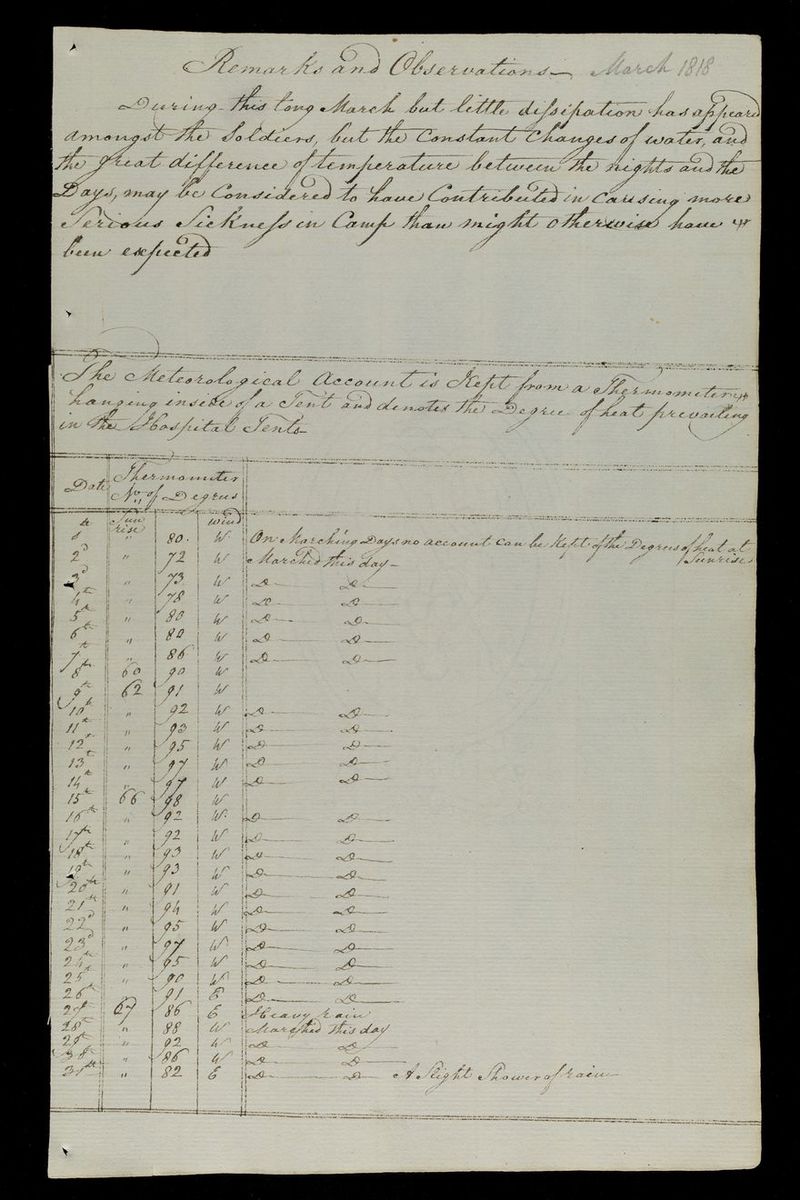 Remarks and Observations — March 1818
During this long March but little dissipation has appeared
amongst the Soldiers, but the Constant Changes of water, and
the great difference of temperature between the nights and the
Days, may be Considered to have Contributed in causing more
Serious Sickness in Camp than might otherwise have
been expected
The Meteorological Account is Kept from a Thermometer
hanging inside of a Tent and denotes the Degree of heat prevailing
in the Hospital Tents —
Date Thermometer
No. of Degrees
Sun rise wind
1st " 80. W On Marching Days no account can be Kept of the Degrees of heat at Sunrise
2d " 72 W Marched this day —
3d " 73 W Do — Do —
4th " 78 W Do — Do —
5th " 80 W Do — Do —
6th " 82 W Do — Do —
7th " 86 W Do — Do —
8th 60 90 W
9th 62 91 W
10th " 92 W Do — Do —
11th " 93 W Do — Do —
12th " 95 W Do — Do —
13th " 97 W Do — Do —
14th " 97 W Do — Do —
15th 66 98 W
16th " 92 W. Do — Do —
17th " 92 W Do — Do —
18th " 93 W Do — Do —
19th " 93 W Do — Do —
20th " 91 W Do — Do —
21st " 94 W Do — Do —
22d " 95 W Do — Do —
23d " 97 W Do — Do —
24th " 95 W Do — Do —
25th " 90 W Do — Do —
26th " 91 E Do — Do —
27th 67 86 E Heavy rain
28th " 88 W Marched this day
29th " 92 W Do — Do —
30th " 86 W Do — Do —
31st " 82 E Do — Do — A Slight Shower of rain —